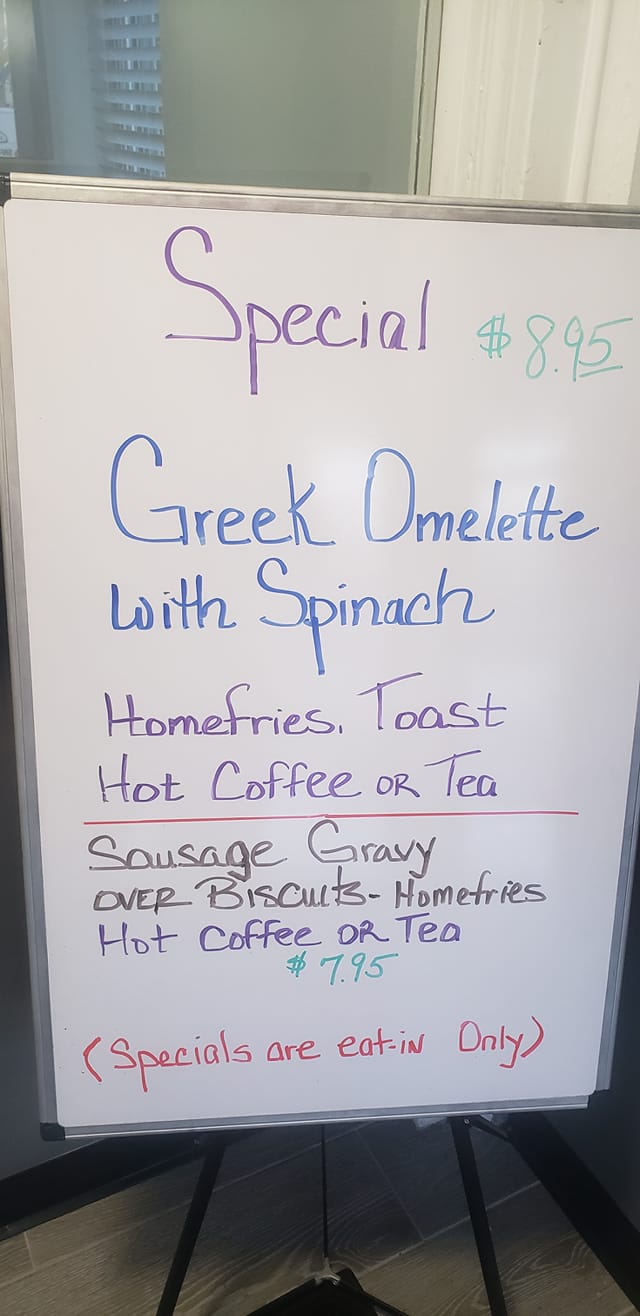 Special $8.95
Greek Omelette
with Spinach
Homefries. Toast
Hot Coffee OR Tea
Sausage Gravy
OVER BISCUITS - Homefries
Hot Coffee OR Tea
$7.95
(Specials are eat-in Only)